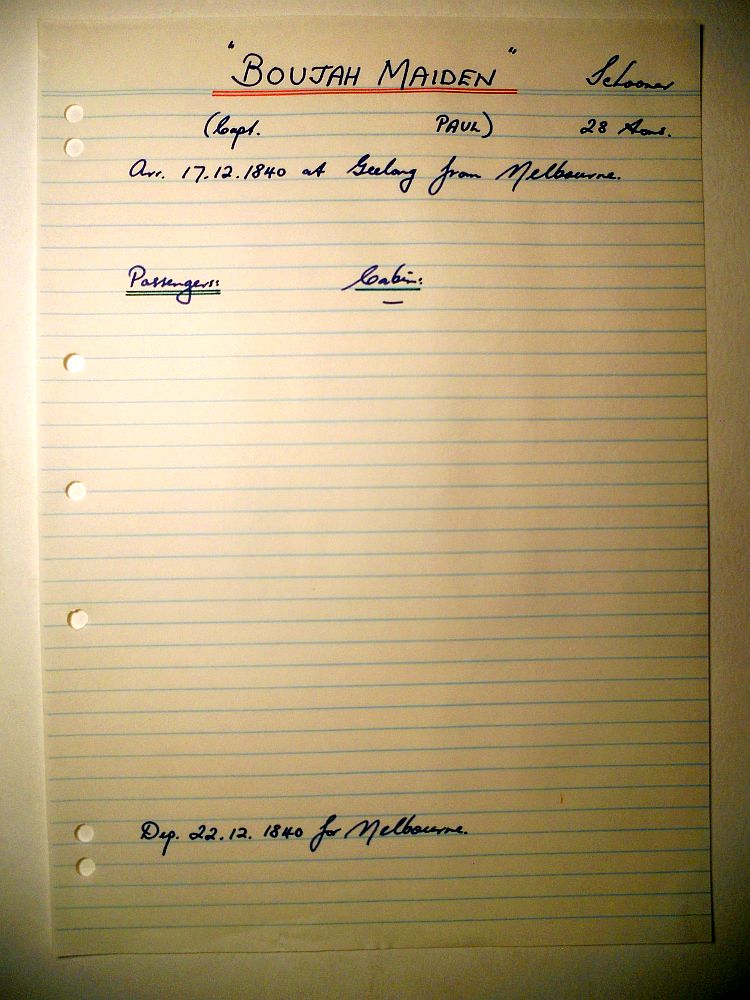 "BOUJAH MAIDEN" Schooner
(Capt. PAUL) 28 tons.
Arr. 17.12.1840 at Geelong from Melbourne.
Passengers: Cabin:
—
Dep. 22.12.1840 for Melbourne.